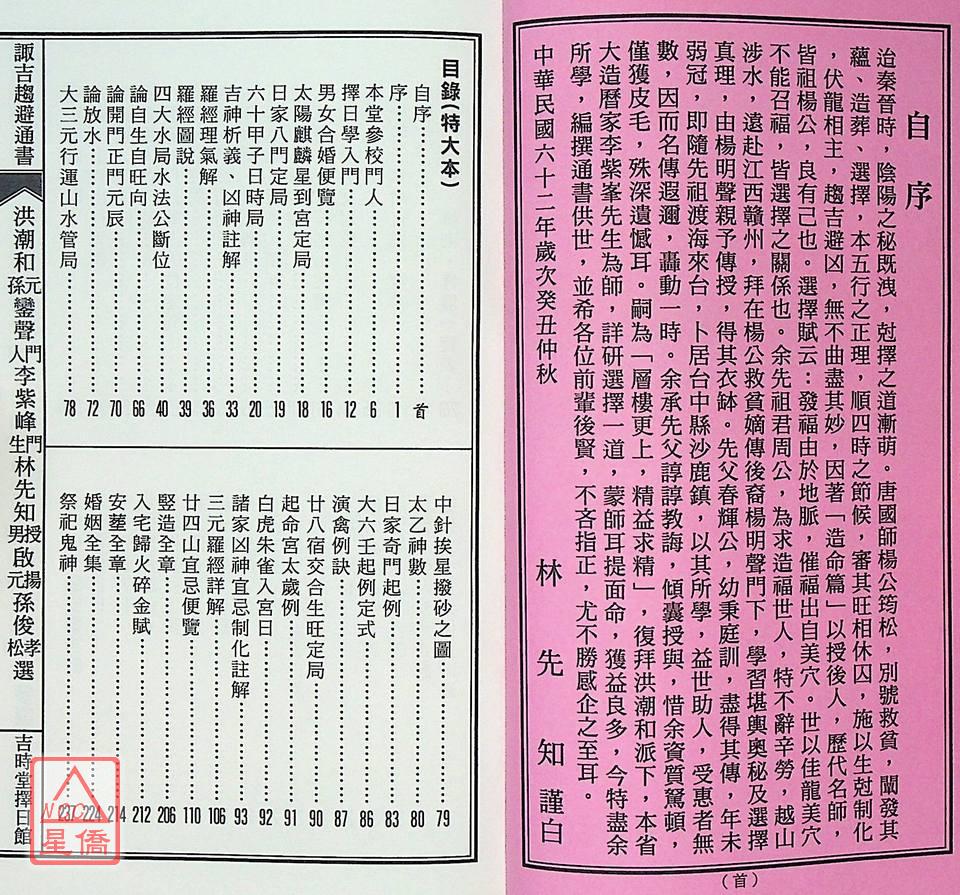 自序
迨秦晉時，陰陽之秘既洩，尅擇之道漸萌。唐國師楊公筠松，別號救貧，闡發其
蘊、造葬、選擇，本五行之正理，順四時之節候，審其旺相休囚，施以生尅制化
，伏龍相主，趨吉避凶，無不曲盡其妙，因著「造命篇」以授後人，歷代名師，
皆祖楊公，良有己也。選擇賦云：發福由於地脈，催福出自美穴。世以佳龍美穴
不能召福，皆選擇之關係也。余先祖君周公，為求造福世人，特不辭辛勞，越山
涉水，遠赴江西贛州，拜在楊公救貧嫡傳後裔楊明聲門下，學習堪輿奧秘及選擇
真理，由楊明聲親予傳授，得其衣鉢。先父春輝公，幼秉庭訓，盡得其傳，年未
弱冠，即隨先祖渡海來台，卜居台中縣沙鹿鎮，以其所學，益世助人，受惠者無
數，因而名傳遐邇，轟動一時。余承先父諄諄教誨，傾囊授與，惜余資質駑頓，
僅獲皮毛，殊深遺憾耳。嗣為「層樓更上，精益求精」，復拜洪潮和派下，本省
大造曆家李紫峯先生為師，詳研選擇一道，蒙師耳提面命，獲益良多，今特盡余
所學，編撰通書供世，並希各位前輩後賢，不吝指正，尤不勝感企之至耳。
中華民國六十二年歲次癸丑仲秋
林先知謹白
（首）
目錄（特大本）
自序……首
序……1
本堂參校門人……6
擇日學入門……12
男女合婚便覽……16
太陽麒麟星到宮定局……18
日家八門定局……19
六十甲子日時局……20
吉神析義、凶神註解……33
羅經理氣解……36
羅經圖說……39
四大水局水法公斷位……40
論自生自旺向……66
論開門正門元辰……70
論放水……72
大三元行運山水管局……78
中針挨星撥砂之圖……79
太乙神數……80
日家奇門起例……83
大六壬起例定式……86
演禽例訣……87
廿八宿交合生旺定局……90
起命宮太歲例……91
白虎朱雀入宮日……92
諸家凶神宜忌制化註解……93
三元羅經詳解……106
廿四山宜忌便覽……110
豎造全章……206
入宅歸火碎金賦……212
安塟全章……214
婚姻全集……224
祭祀鬼神……237
諏吉趨避通書
洪潮和元孫鑾聲門人李紫峰門生林先知授男啟揚元孫俊孝松選
吉時堂擇日館
NCC
星僑